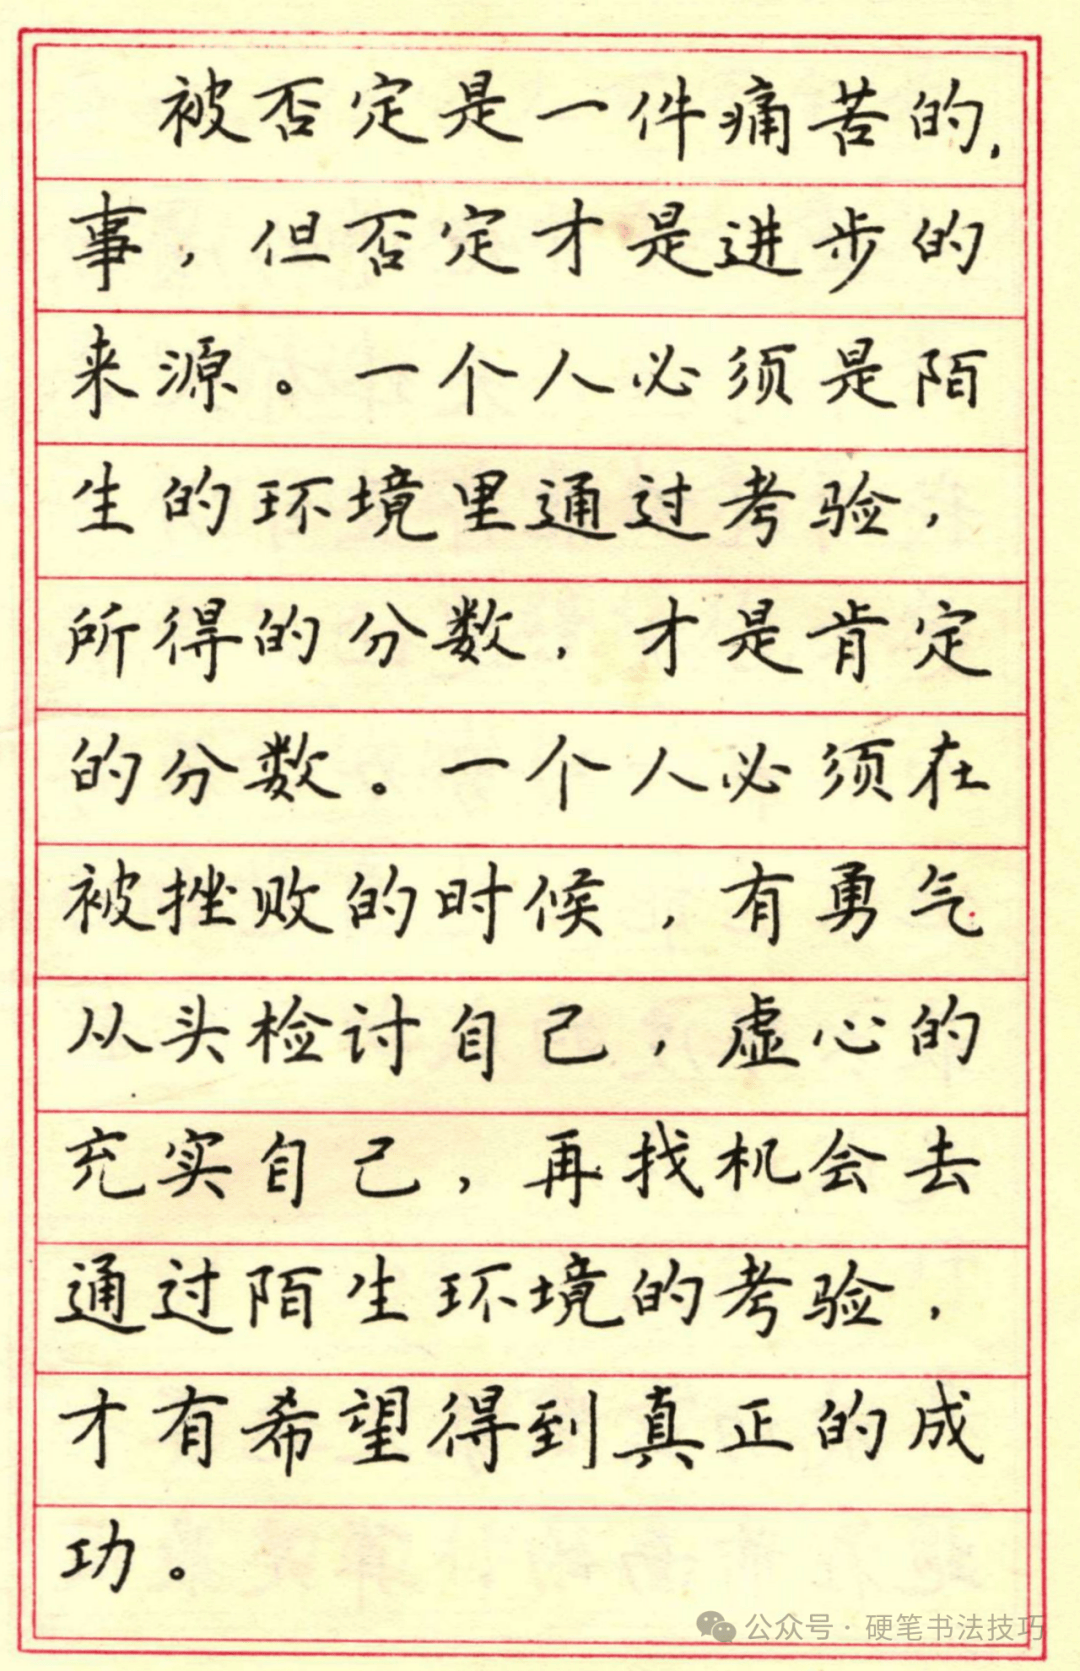 被否定是一件痛苦的，
事，但否定才是进步的
来源。一个人必须是陌
生的环境里通过考验，
所得的分数，才是肯定
的分数。一个人必须在
被挫败的时候，有勇气
从头检讨自己，虚心的
充实自己，再找机会去
通过陌生环境的考验，
才有希望得到真正的成
功。
公众号·硬笔书法技巧